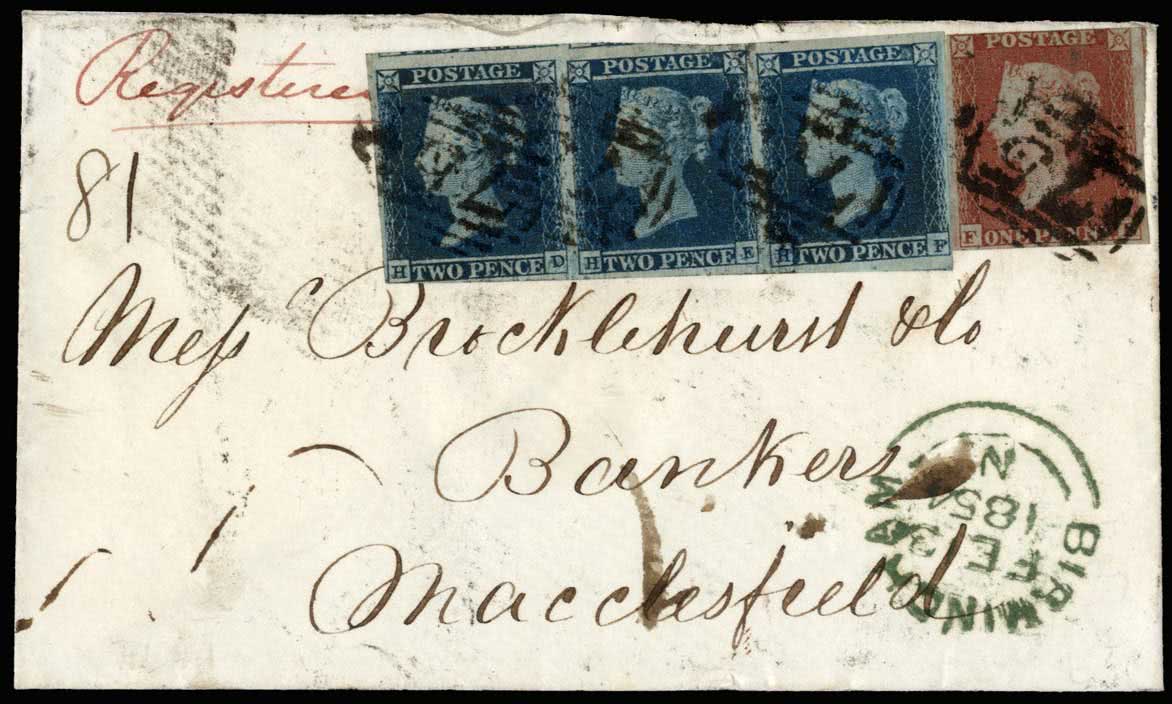 Registered
POSTAGE POSTAGE POSTAGE POSTAGE
81
H TWO PENCE D H TWO PENCE E H TWO PENCE F F ONE PENNY
Messrs Brocklehurst & Co
Bankers
Macclesfield
BIRMINGHAM
FE 3
185